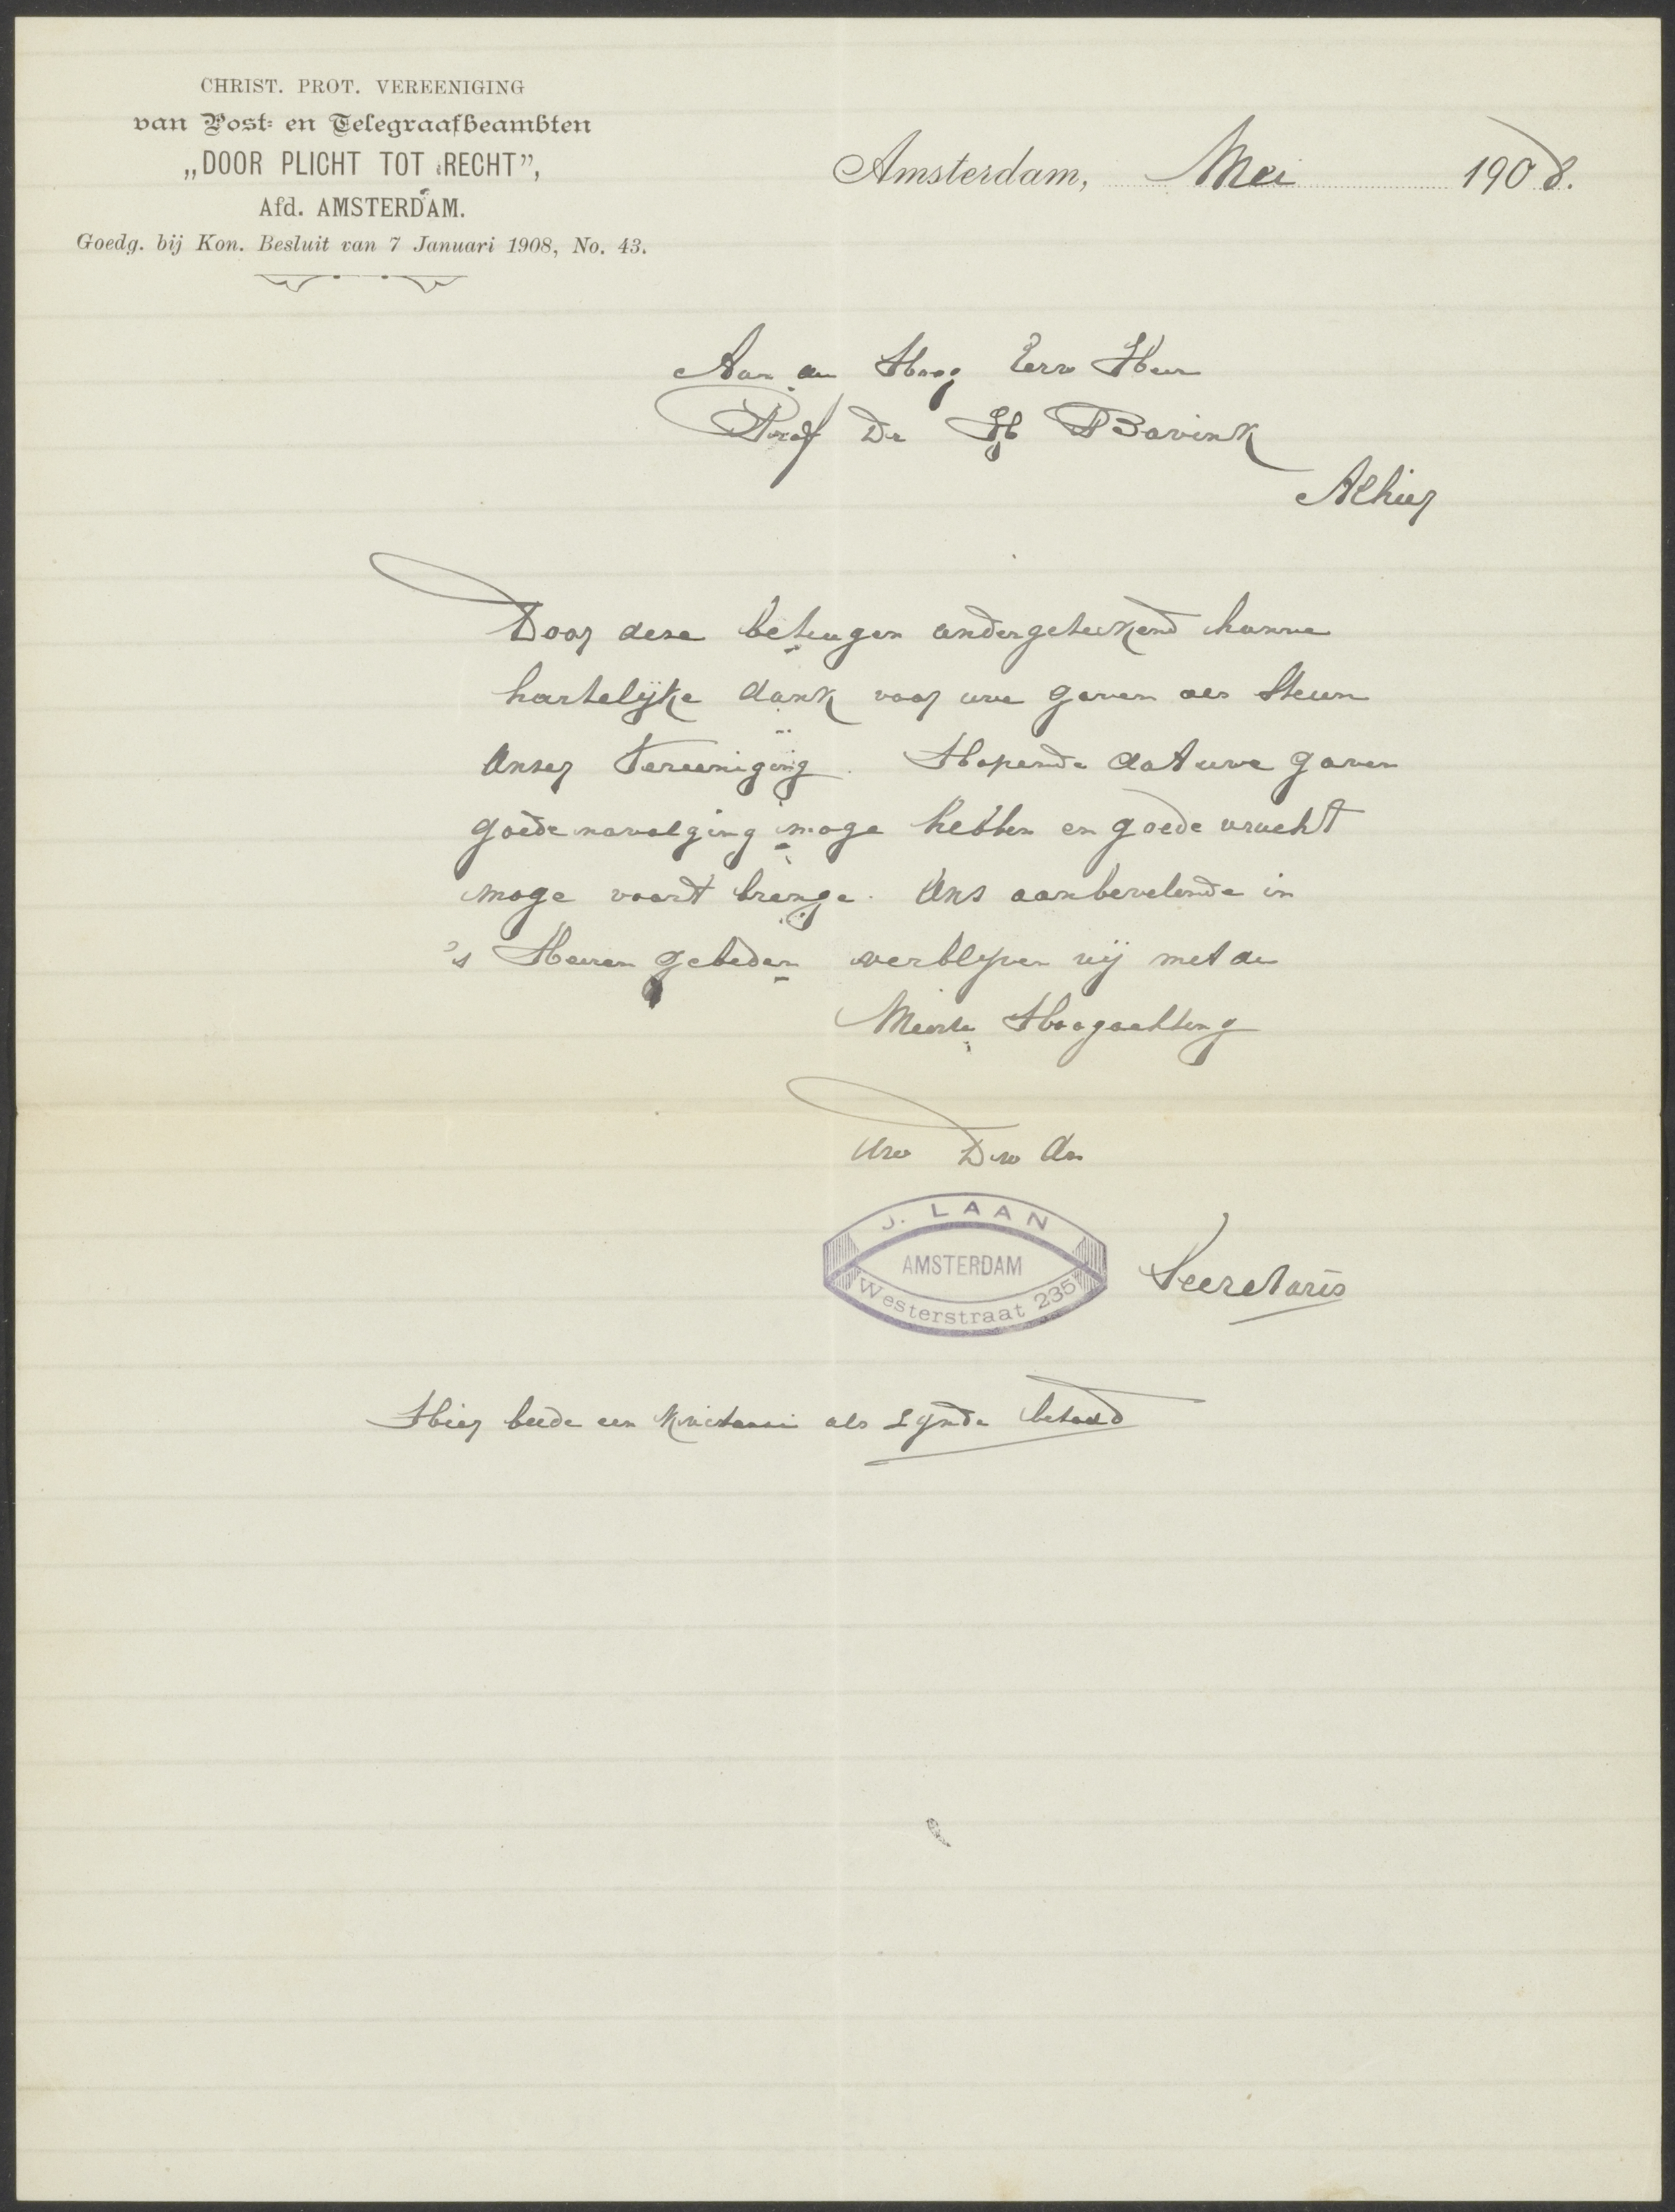 CHRIST. PROT. VEREENIGING
van Post- en Telegraafbeambten
„DOOR PLICHT TOT RECHT”,
Afd. AMSTERDAM.
Goedg. bij Kon. Besluit van 7 Januari 1908, No. 43.
Amsterdam, Mei 1908.
Aan den Hoog Eerw Heer
Prof Dr H Bavink
Alhier
Door deze betuigen ondergeteekend hunne
hartelijke dank voor uwe gaven als Steun
Onzer Vereeniging. Hopende dat uwe gaven
goede navolging moge hebben en goede vrucht
moge voort brenge. Ons aanbevelende in
's Heeren gebeden verblijven wij met de
Meeste Hoogachting
Uw Dw Dn
J. LAAN
AMSTERDAM
Westerstraat 235
Secretaris
Hier beede een Kwitansi als zijnde betaald